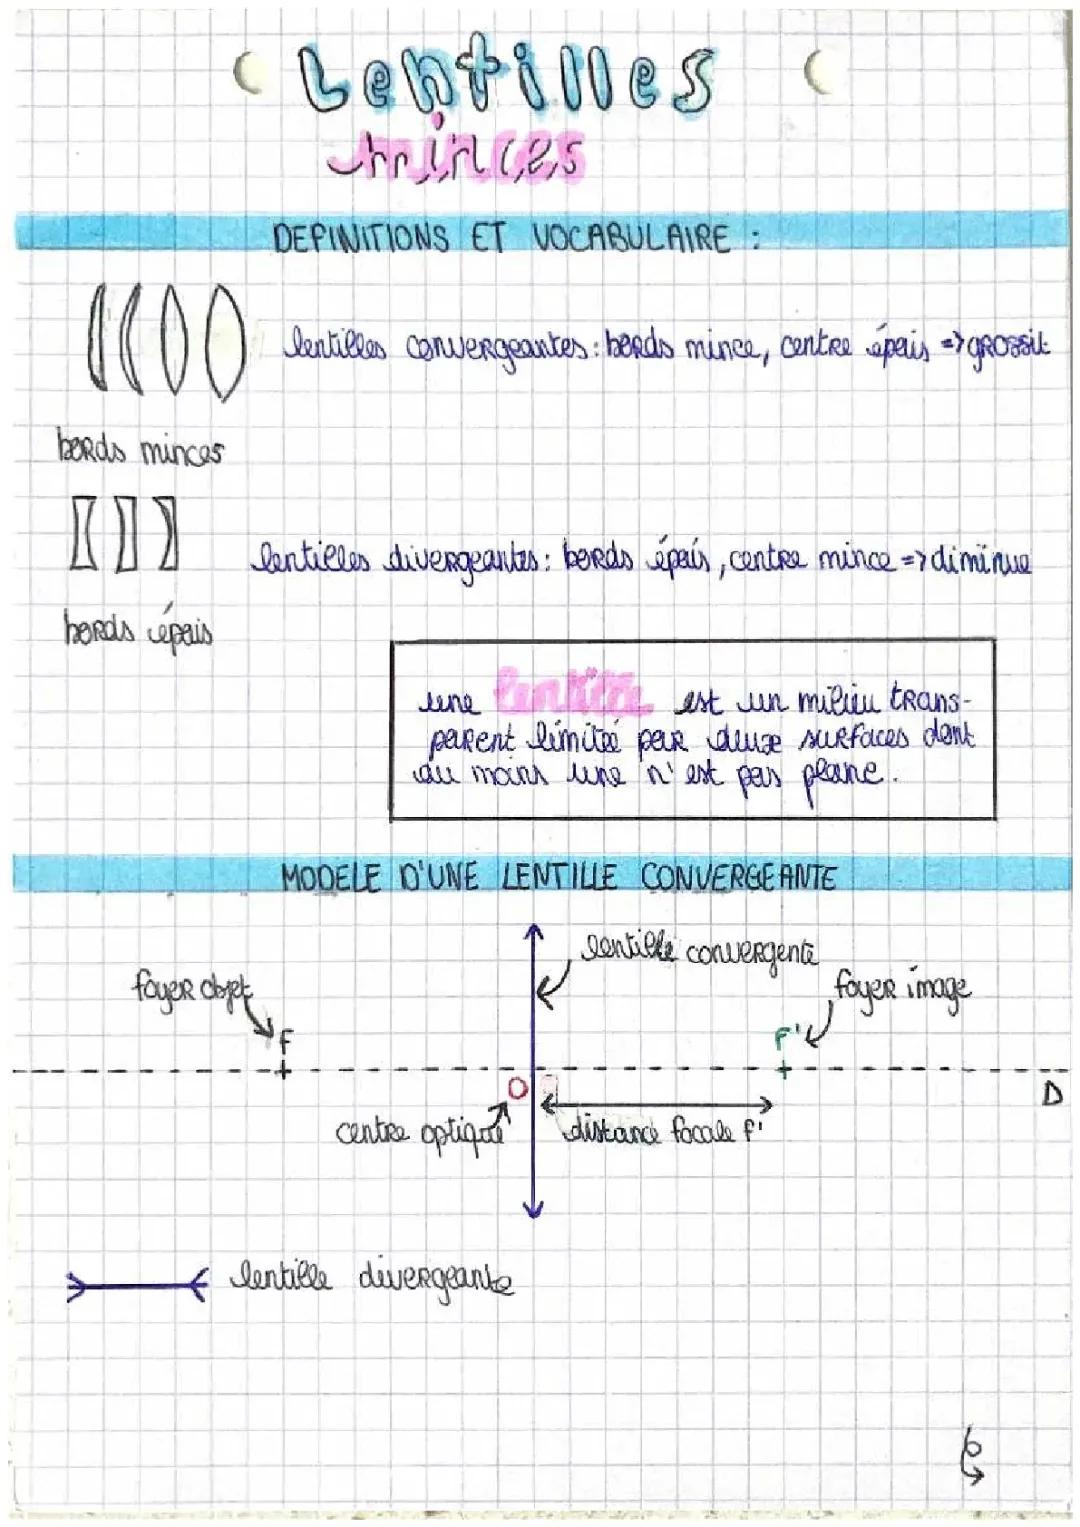 Lentilles
minces
DEFINITIONS ET VOCABULAIRE :
lentilles convergeantes : bords mince, centre épais => grossit
bords minces
lentilles divergeantes : bords épais, centre mince => diminue
bords épais
une lentille est un milieu trans-
parent limité par deux surfaces dont
au moins une n'est pas plane.
MODELE D'UNE LENTILLE CONVERGEANTE
lentille convergente
foyer objet
foyer image
F
F'
O
D
centre optique
distance focale f'
lentille divergeante